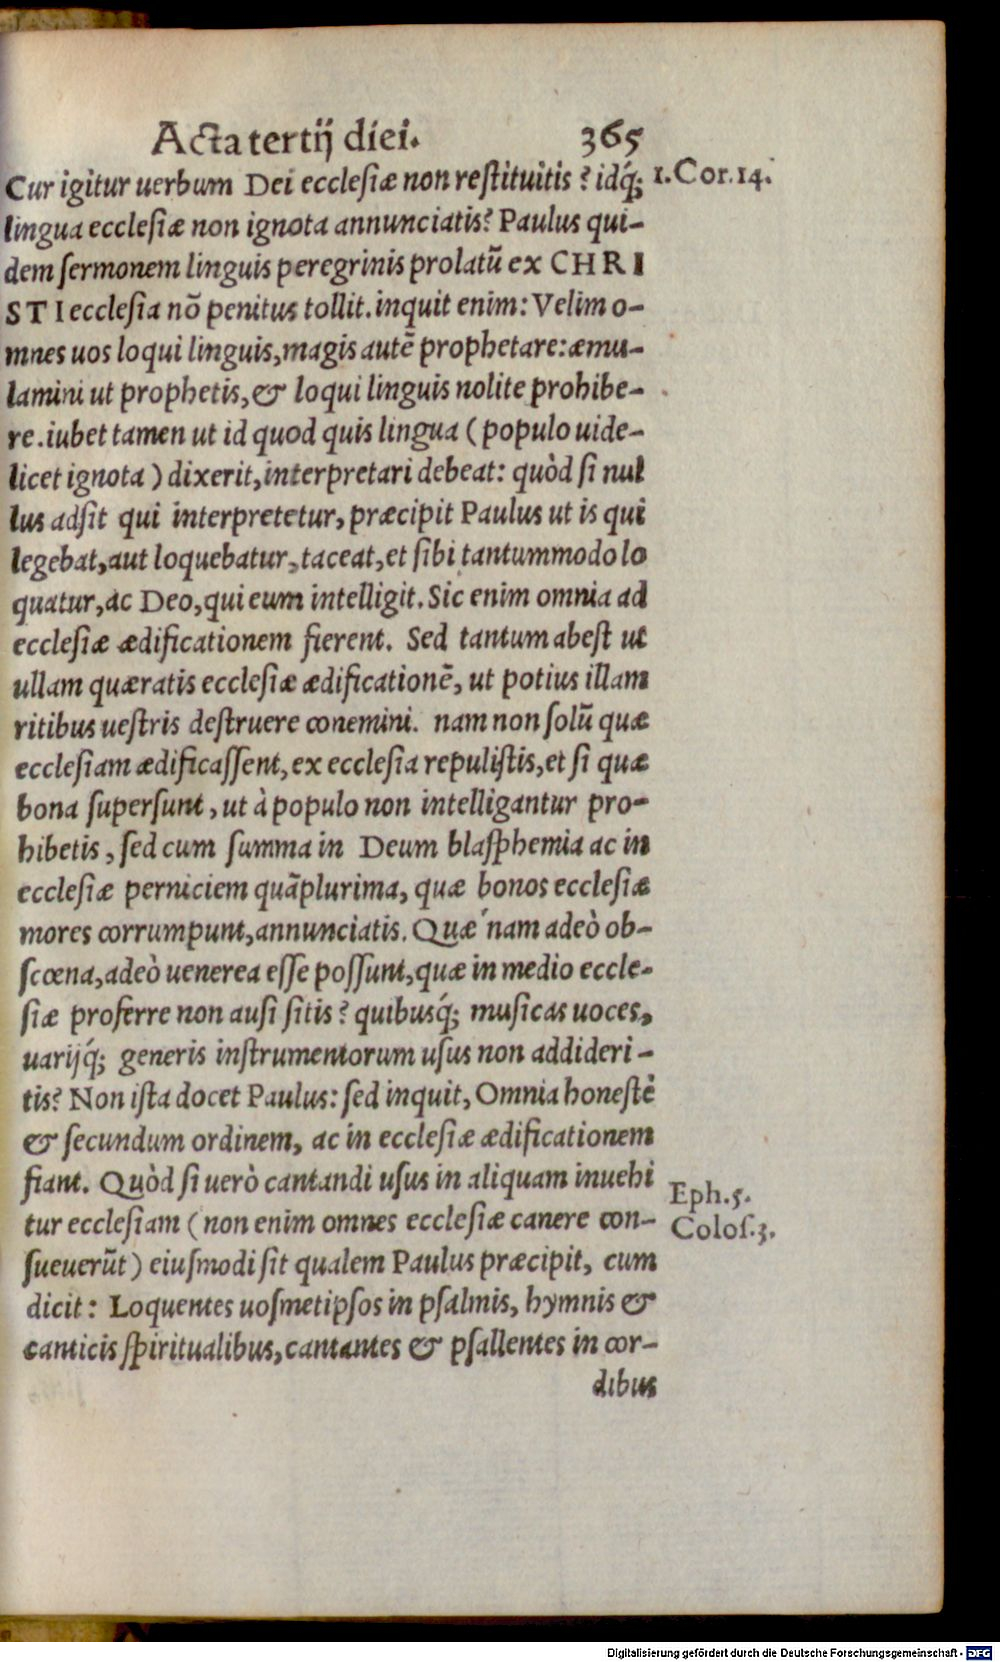 Acta tertij diei. 365
Cur igitur uerbum Dei ecclesiæ non restituitis? idq́; 1. Cor. 14.
lingua ecclesiæ non ignota annunciatis? Paulus qui-
dem sermonem linguis peregrinis prolatũ ex CHRI
STI ecclesia nõ penitus tollit. inquit enim: Velim o-
mnes uos loqui linguis, magis autẽ prophetare: æmu-
lamini ut prophetis, & loqui linguis nolite prohibe-
re. iubet tamen ut id quod quis lingua (populo uide-
licet ignota) dixerit, interpretari debeat: quòd si nul
lus adsit qui interpretetur, præcipit Paulus ut is qui
legebat, aut loquebatur, taceat, et sibi tantummodo lo
quatur, ac Deo, qui eum intelligit. Sic enim omnia ad
ecclesiæ ædificationem fierent. Sed tantum abest ut
ullam quæratis ecclesiæ ædificationẽ, ut potius illam
ritibus uestris destruere conemini. nam non solũ quæ
ecclesiam ædificassent, ex ecclesia repulistis, et si quæ
bona supersunt, ut à populo non intelligantur pro-
hibetis, sed cum summa in Deum blasphemia ac in
ecclesiæ perniciem quãplurima, quæ bonos ecclesiæ
mores corrumpunt, annunciatis. Quæ nam adeò ob-
scœna, adeò uenerea esse possunt, quæ in medio eccle-
siæ proferre non ausi sitis? quibusq́; musicas uoces,
uarijq́; generis instrumentorum usus non addideri-
tis? Non ista docet Paulus: sed inquit, Omnia honestè
& secundum ordinem, ac in ecclesiæ ædificationem
fiant. Quòd si uerò cantandi usus in aliquam inuehi
tur ecclesiam (non enim omnes ecclesiæ canere con- Eph. 5.
sueuerũt) eiusmodi sit qualem Paulus præcipit, cum Colos. 3.
dicit: Loquentes uosmetipsos in psalmis, hymnis &
canticis spiritualibus, cantantes & psallentes in cor-
dibus
Digitalisierung gefördert durch die Deutsche Forschungsgemeinschaft - DFG